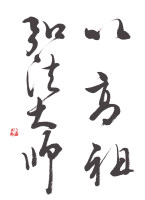 以高祖
弘法大師